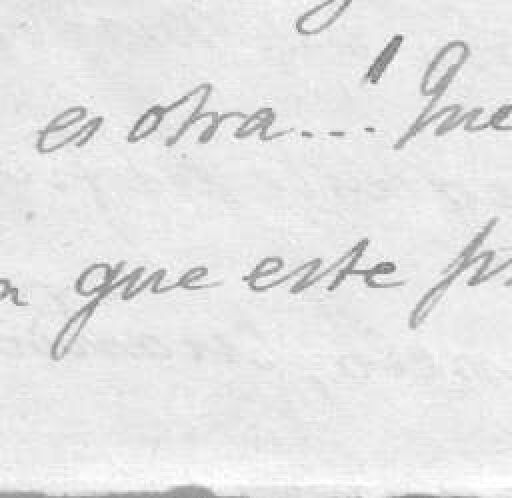 es otra...! Que
que este